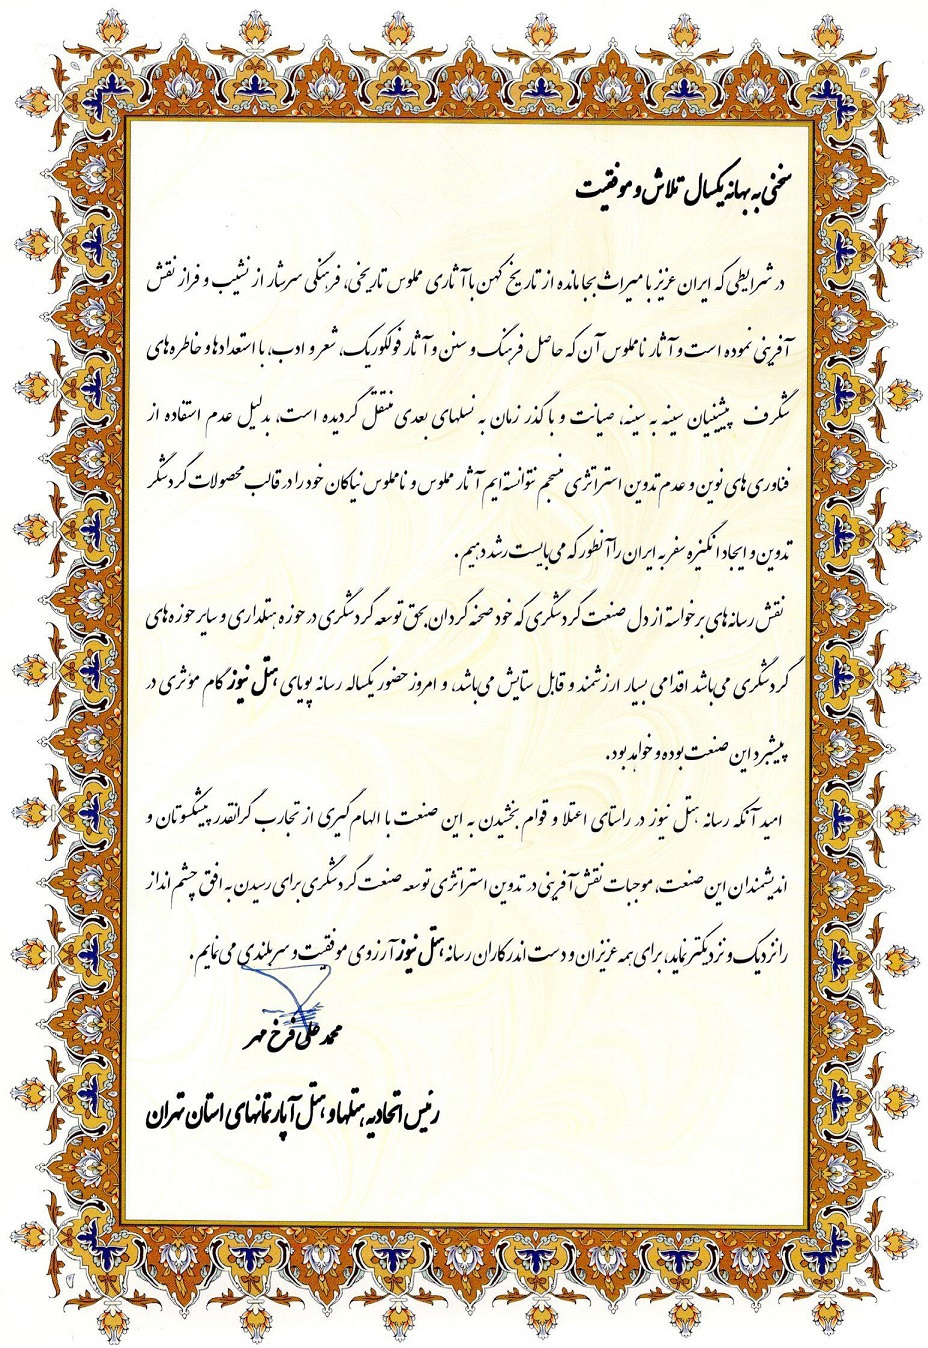 سخنی به بهانه یکسال تلاش و موفقیت
در شرایطی که ایران عزیز با میراث بجا مانده از تاریخ کهن با آثاری ملموس تاریخی، فرهنگی سرشار از نشیب و فراز نقش
آفرینی نموده است و آثار ناملموس آن که حاصل فرهنگ و سنن و آثار فولکوریک، شعر و ادب، با استعدادها و خاطره های
شگرف پیشینیان سینه به سینه، صیانت و با گذر زمان به نسلهای بعدی منتقل گردیده است، بدلیل عدم استفاده از
فناوری های نوین و عدم تدوین استراتژی منسجم نتوانسته ایم آثار ملموس و ناملموس نیاکان خود را در قالب محصولات گردشگر
تدوین و ایجاد انگیزه سفر به ایران را آنطور که می بایست رشد دهیم.
نقش رسانه های برخواسته از دل صنعت گردشگری که خود صحنه گردان بحق توسعه گردشگری در حوزه هتلداری و سایر حوزه های
گردشگری می باشد اقدامی بسیار ارزشمند و قابل ستایش می باشد، و امروز حضور یکساله رسانه پویای هتل نیوز گام مؤثری در
پیشبرد این صنعت بوده و خواهد بود.
امید آنکه رسانه هتل نیوز در راستای اعتلا و قوام بخشیدن به این صنعت با الهام گیری از تجارب گرانقدر پیشکسوتان و
اندیشمندان این صنعت، موجبات نقش آفرینی در تدوین استراتژی توسعه صنعت گردشگری برای رسیدن به افق چشم انداز
را نزدیک و نزدیکتر نماید، برای همه عزیزان و دست اندرکاران رسانه هتل نیوز آرزوی موفقیت و سربلندی می نمایم.
محمد علی فرخ مهر
رئیس اتحادیه هتلها و هتل آپارتمانهای استان تهران